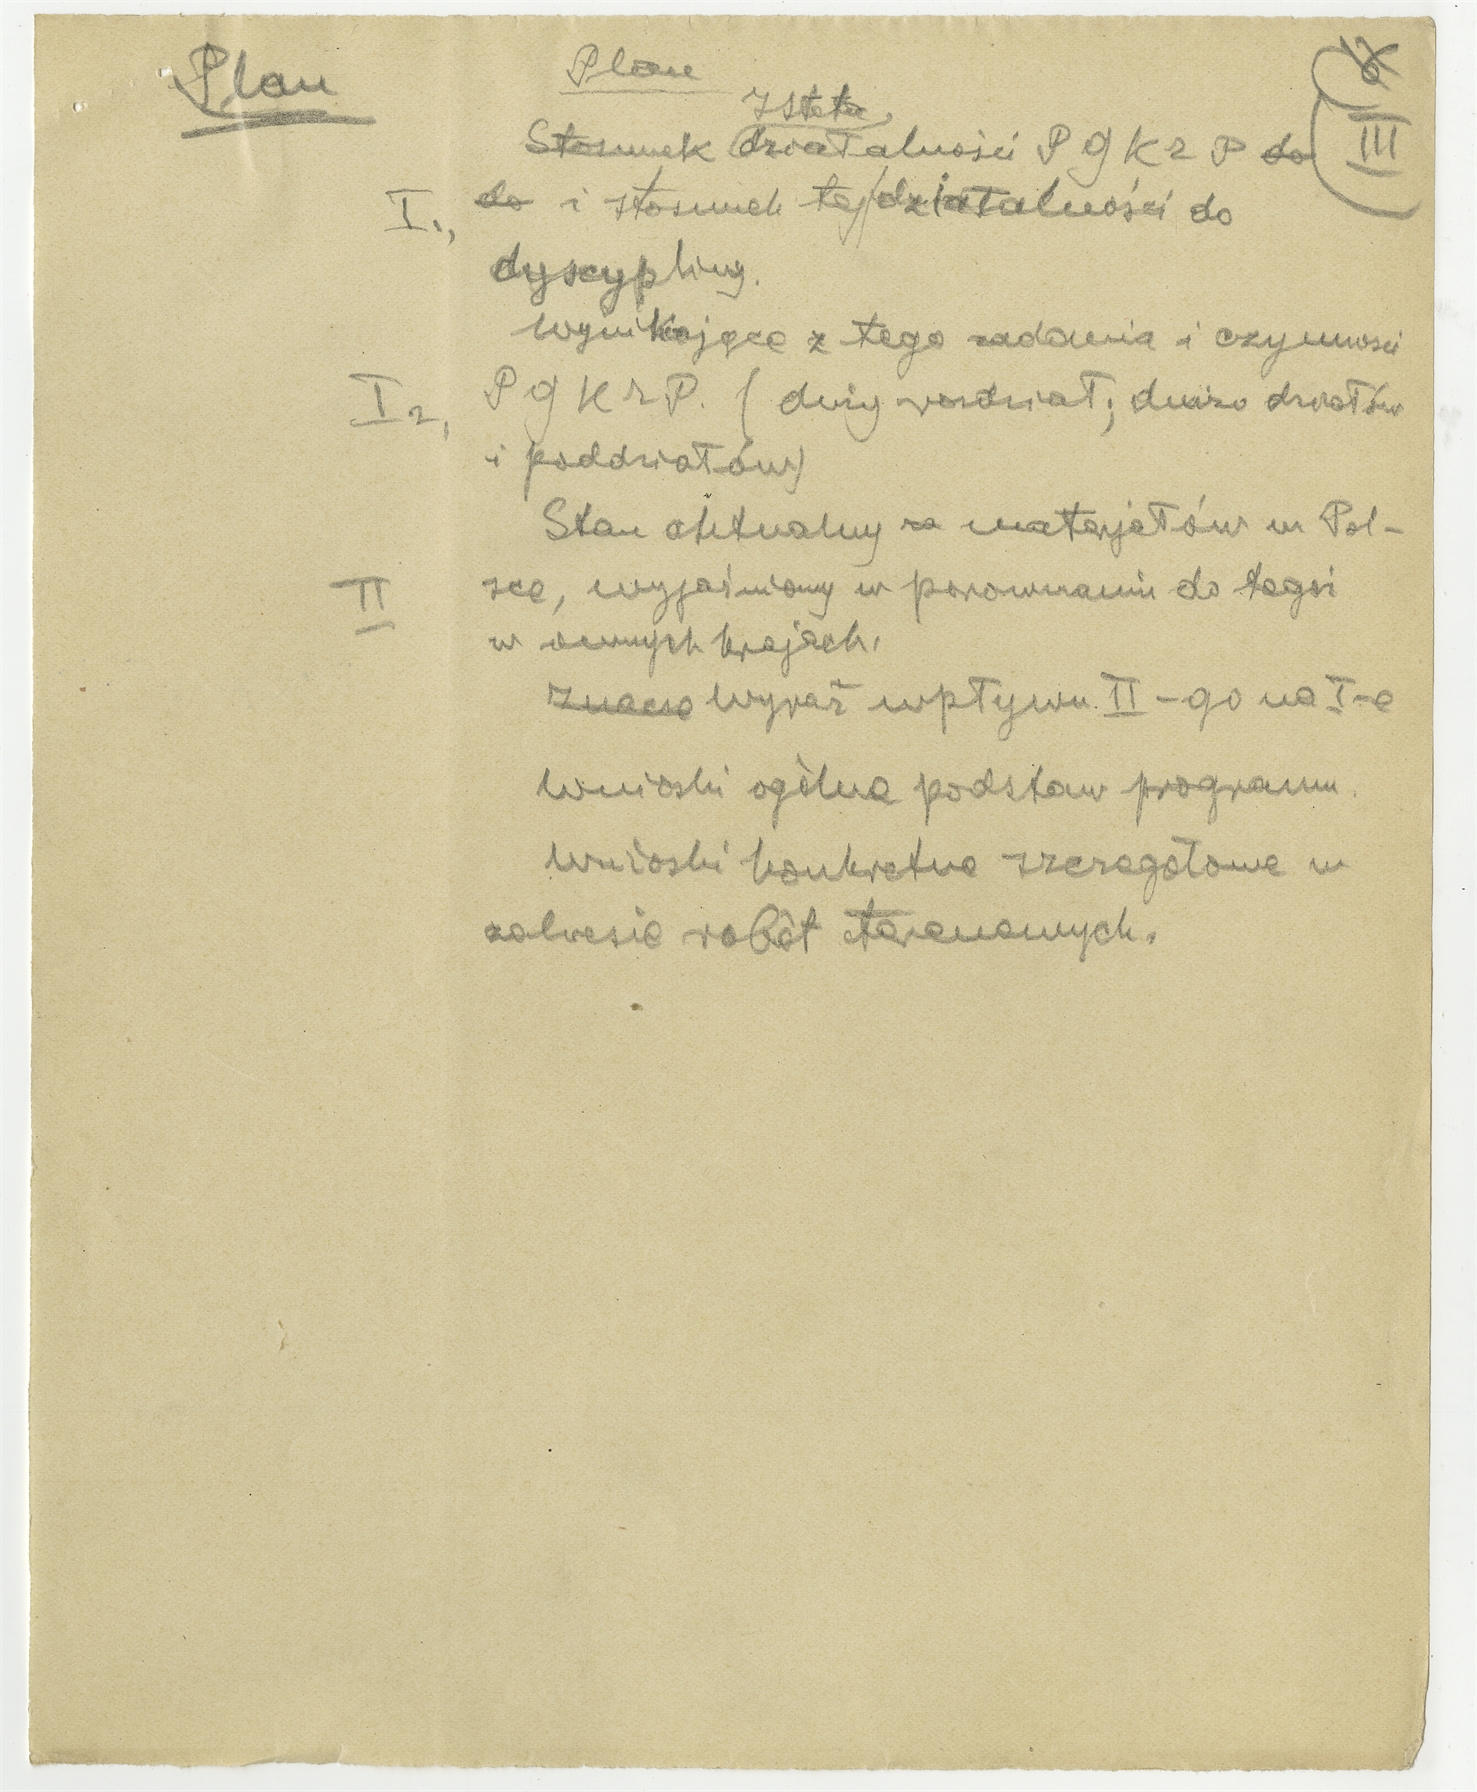 Plan
Plan
Istota
Stosunek działalności P G K R P do
III
I1, do i stosunek tej działalności do
dyscypliny.
Wynikające z tego zadania i czynności
I2, P G K R P. (duży rozdział; dużo działów
i poddziałów)
Stan aktualny za materjałów w Pol-
II sce, wyjaśniony w porownaniu do tegoż
w innych krajach.
Znacze Wyraz wpływu II-go na I-e
Wnioski ogólne podstaw programu.
Wnioski konkretne szczegołowe w
zakresie robót terenowych.